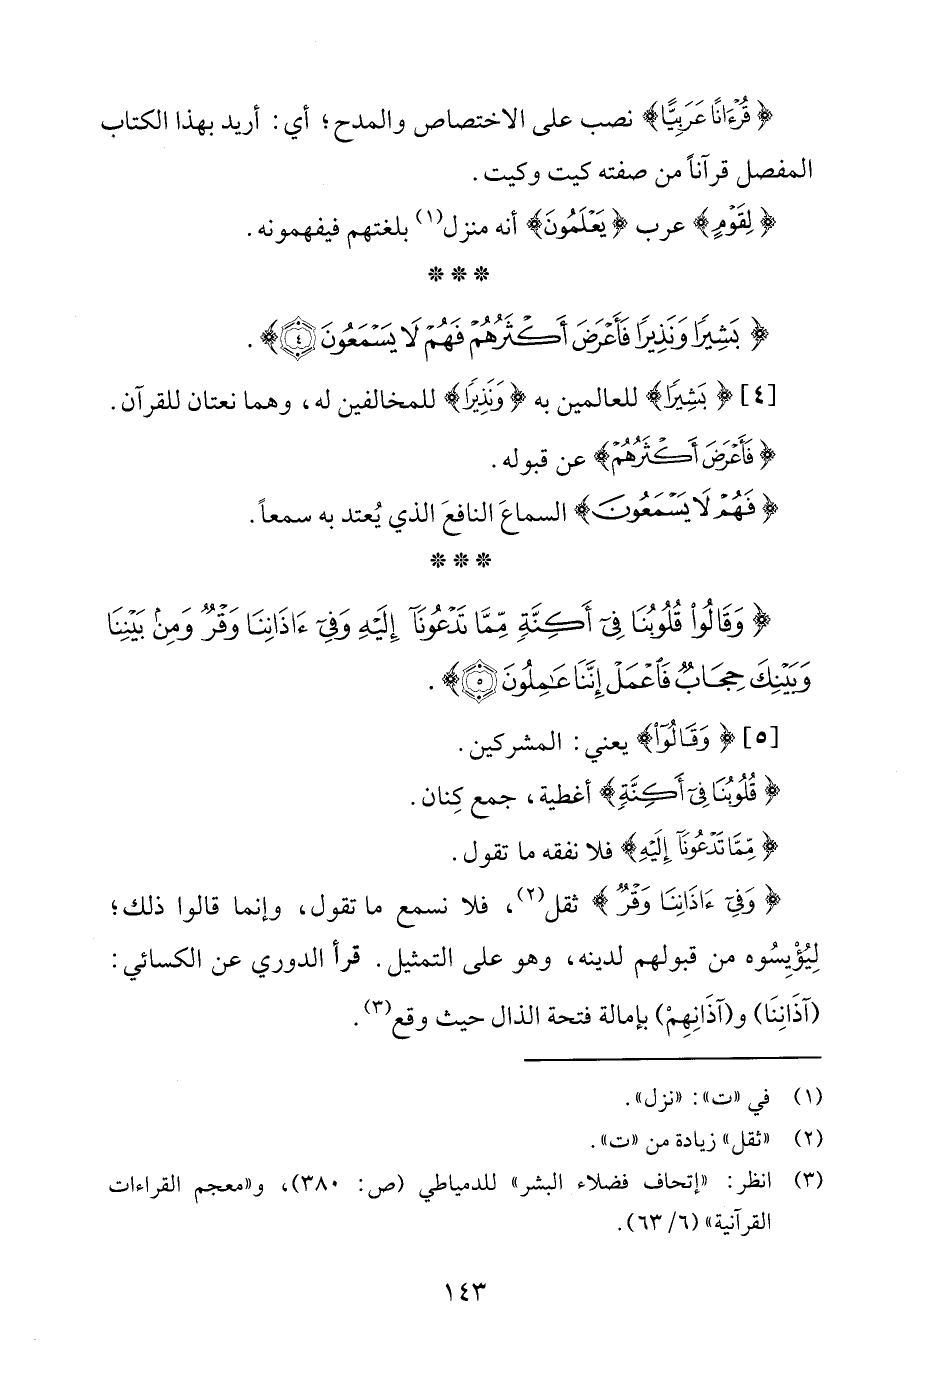 ﴿ قُرْءَانًا عَرَبِيًّا ﴾ نصب على الاختصاص والمدح؛ أي: أريد بهذا الكتاب
المفصل قرآناً من صفته كيت وكيت.
﴿ لِقَوْمٍ ﴾ عرب ﴿ يَعْلَمُونَ ﴾ أنه منزل(١) بلغتهم فيفهمونه.
* * *
﴿ بَشِيرًا وَنَذِيرًا فَأَعْرَضَ أَكْثَرُهُمْ فَهُمْ لَا يَسْمَعُونَ ٤ ﴾.
[٤] ﴿ بَشِيرًا ﴾ للعالمين به ﴿ وَنَذِيرًا ﴾ للمخالفين له، وهما نعتان للقرآن.
﴿ فَأَعْرَضَ أَكْثَرُهُمْ ﴾ عن قبوله.
﴿ فَهُمْ لَا يَسْمَعُونَ ﴾ السماعَ النافعَ الذي يُعتد به سمعاً.
* * *
﴿ وَقَالُوا۟ قُلُوبُنَا فِىٓ أَكِنَّةٍ مِّمَّا تَدْعُونَآ إِلَيْهِ وَفِىٓ ءَاذَانِنَا وَقْرٌ وَمِنۢ بَيْنِنَا
وَبَيْنِكَ حِجَابٌ فَٱعْمَلْ إِنَّنَا عَـٰمِلُونَ ٥ ﴾.
[٥] ﴿ وَقَالُوٓا۟ ﴾ يعني: المشركين.
﴿ قُلُوبُنَا فِىٓ أَكِنَّةٍ ﴾ أغطية، جمع كِنان.
﴿ مِّمَّا تَدْعُونَآ إِلَيْهِ ﴾ فلا نفقه ما تقول.
﴿ وَفِىٓ ءَاذَانِنَا وَقْرٌ ﴾ ثقل(٢)، فلا نسمع ما تقول، وإنما قالوا ذلك؛
لِيُؤْيِسُوه من قبولهم لدينه، وهو على التمثيل. قرأ الدوري عن الكسائي:
(آذَانِنَا) و(آذَانِهِمْ) بإمالة فتحة الذال حيث وقع(٣).
(١) في «ت»: «نزل».
(٢) «ثقل» زيادة من «ت».
(٣) انظر: «إتحاف فضلاء البشر» للدمياطي (ص: ٣٨٠)، و«معجم القراءات
القرآنية» (٦/ ٦٣).
١٤٣